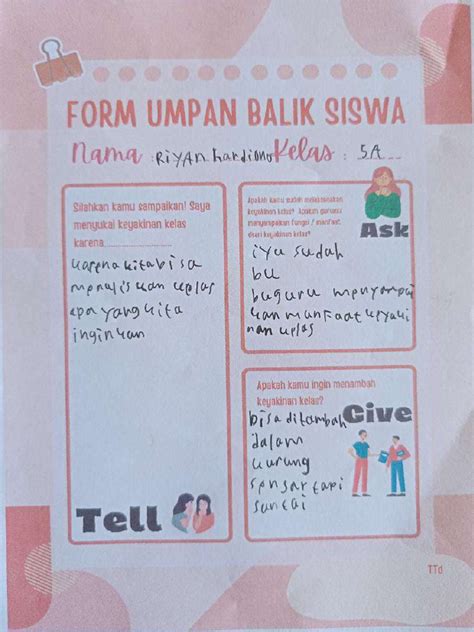 FORM UMPAN BALIK SISWA
Nama : Riyan hardiono Kelas : 5A
Silahkan kamu sampaikan! Saya
menyukai keyakinan kelas
karena
karena kita bisa
menuliskan kelas
apa yang kita
inginkan
Tell
Apakah kamu sudah melaksanakan
keyakinan kelas? Apakah gurumu
menyampaikan fungsi / manfaat
dari keyakinan kelas?
Ask
iya sudah
bu
bu guru menyampai
kan manfaat keyaki
nan kelas
Apakah kamu ingin menambah
keyakinan kelas?
Give
bisa ditambah
dalam
kurung
santai
TTd